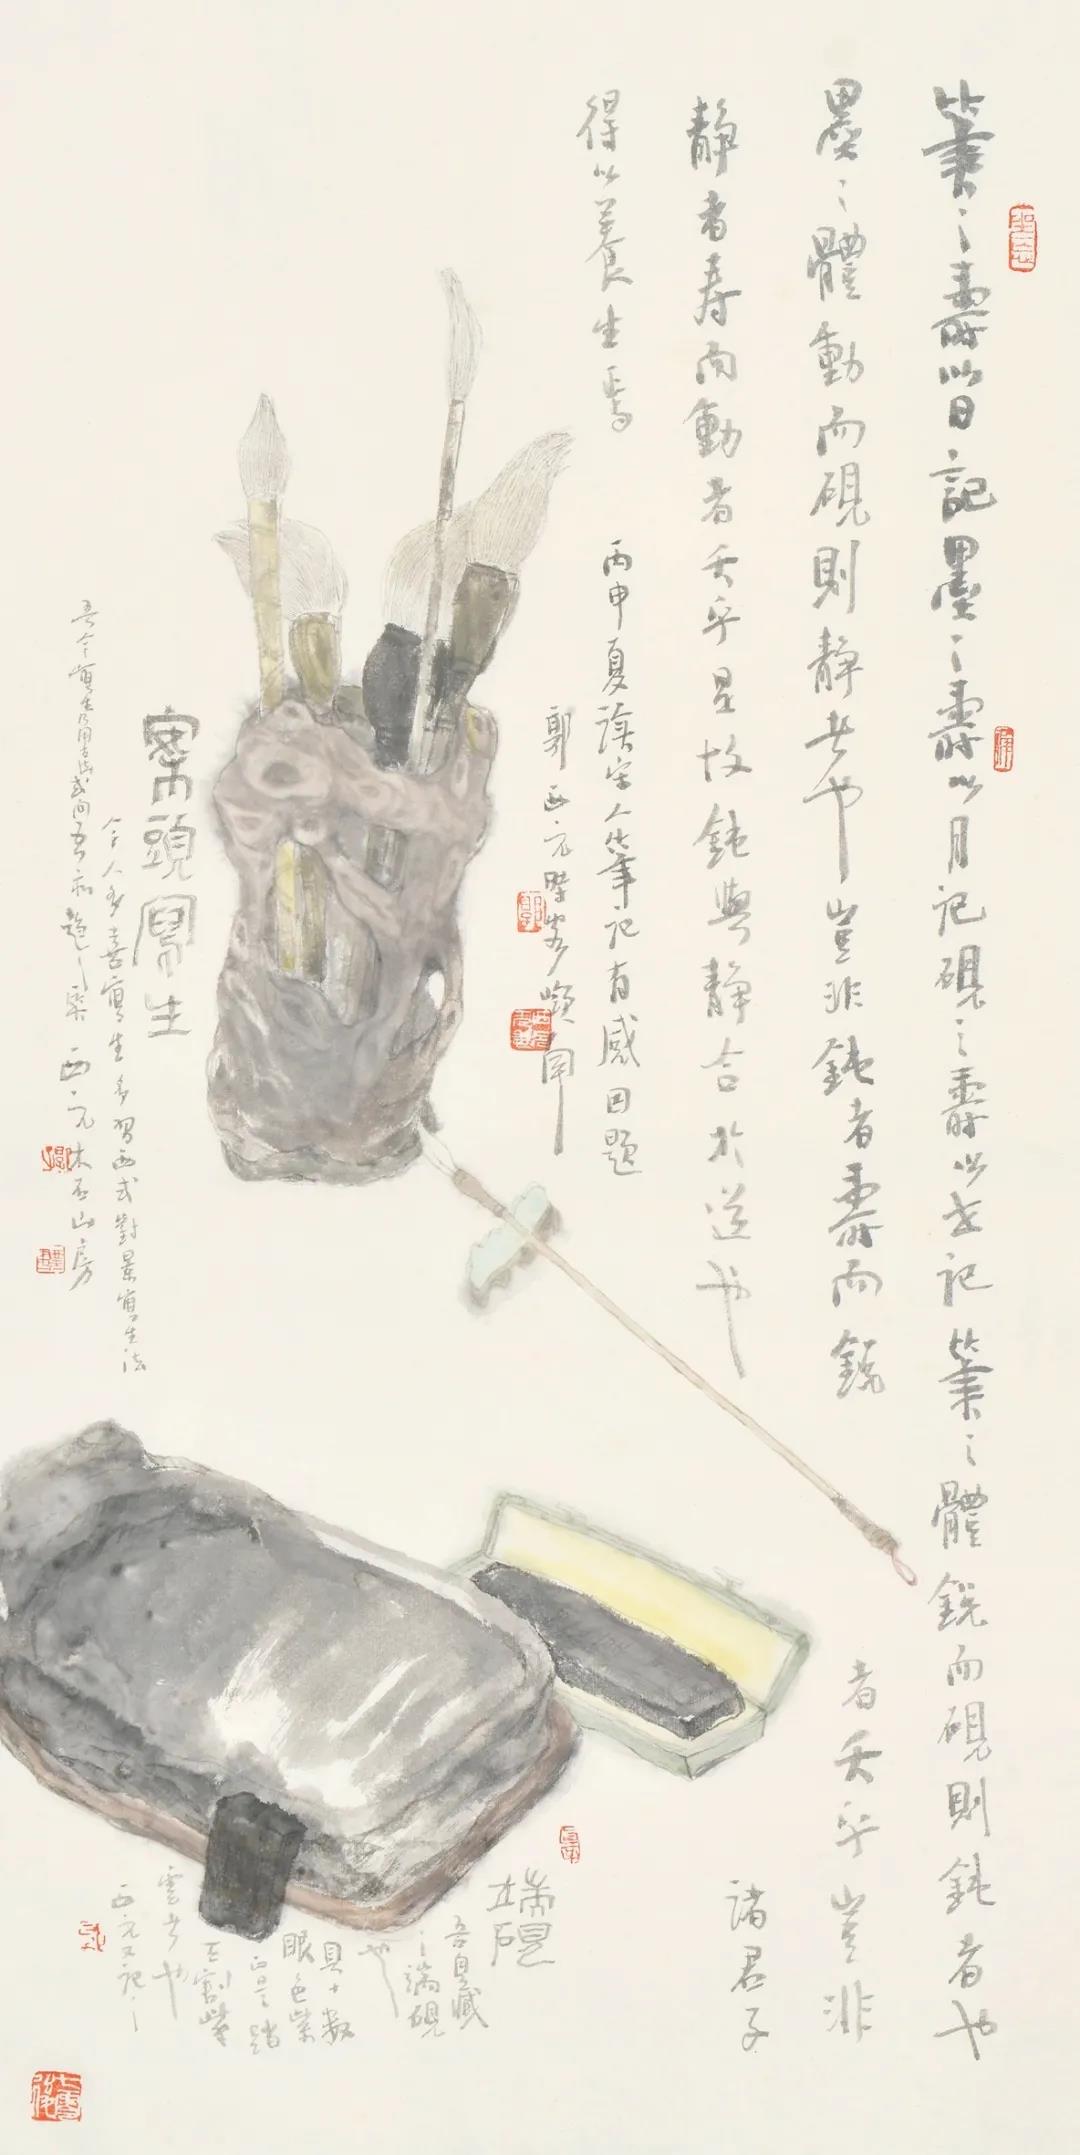 筆之壽以日記墨之壽以月記硯之壽以世記筆之體銳而硯則鈍者也
墨之體動而硯則静者也豈非鈍者壽而銳者夭乎豈非
静者寿而動者夭乎是故鈍與静合於道也諸君子
得以養生焉
丙申夏讀宋人筆記有感因題
郭西元
案頭寫生
今人多喜寫生多習西式對景寫生法
吾今寫生乃用古法或問吾 西元木石山房
端硯
吾自藏
之端硯
也
具十數
眼色紫
正是踏
天割紫
雲者也
西元又記之